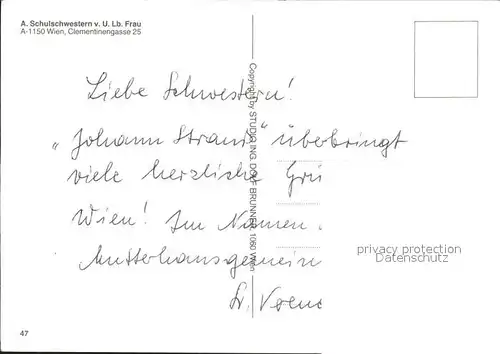 A. Schulschwestern v. U. Lb. Frau
A-1150 Wien, Clementinengasse 25
Liebe Schwestern!
„Johann Strauß“ überbringt
viele herzliche Grü
Wien! Im Namen
Mutterhausgemein
Sr.
Copyright by STUDIO ING. DORF BRUNNER, 1060 Wien
privacy protection
Datenschutz
47